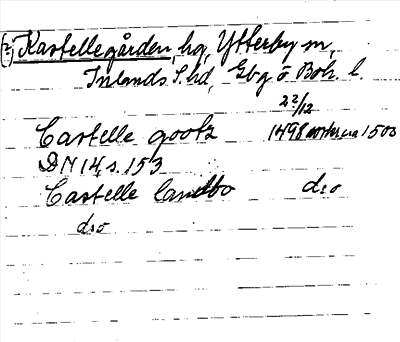 (2) Kastellegården, hg, Ytterby sn,
Inlands S. hd, Gbg o Boh. l.
22/12
Castelle gootz 1498 omkr ca 1503
DN 14, s. 153
Castelle landbo d:o
d:o